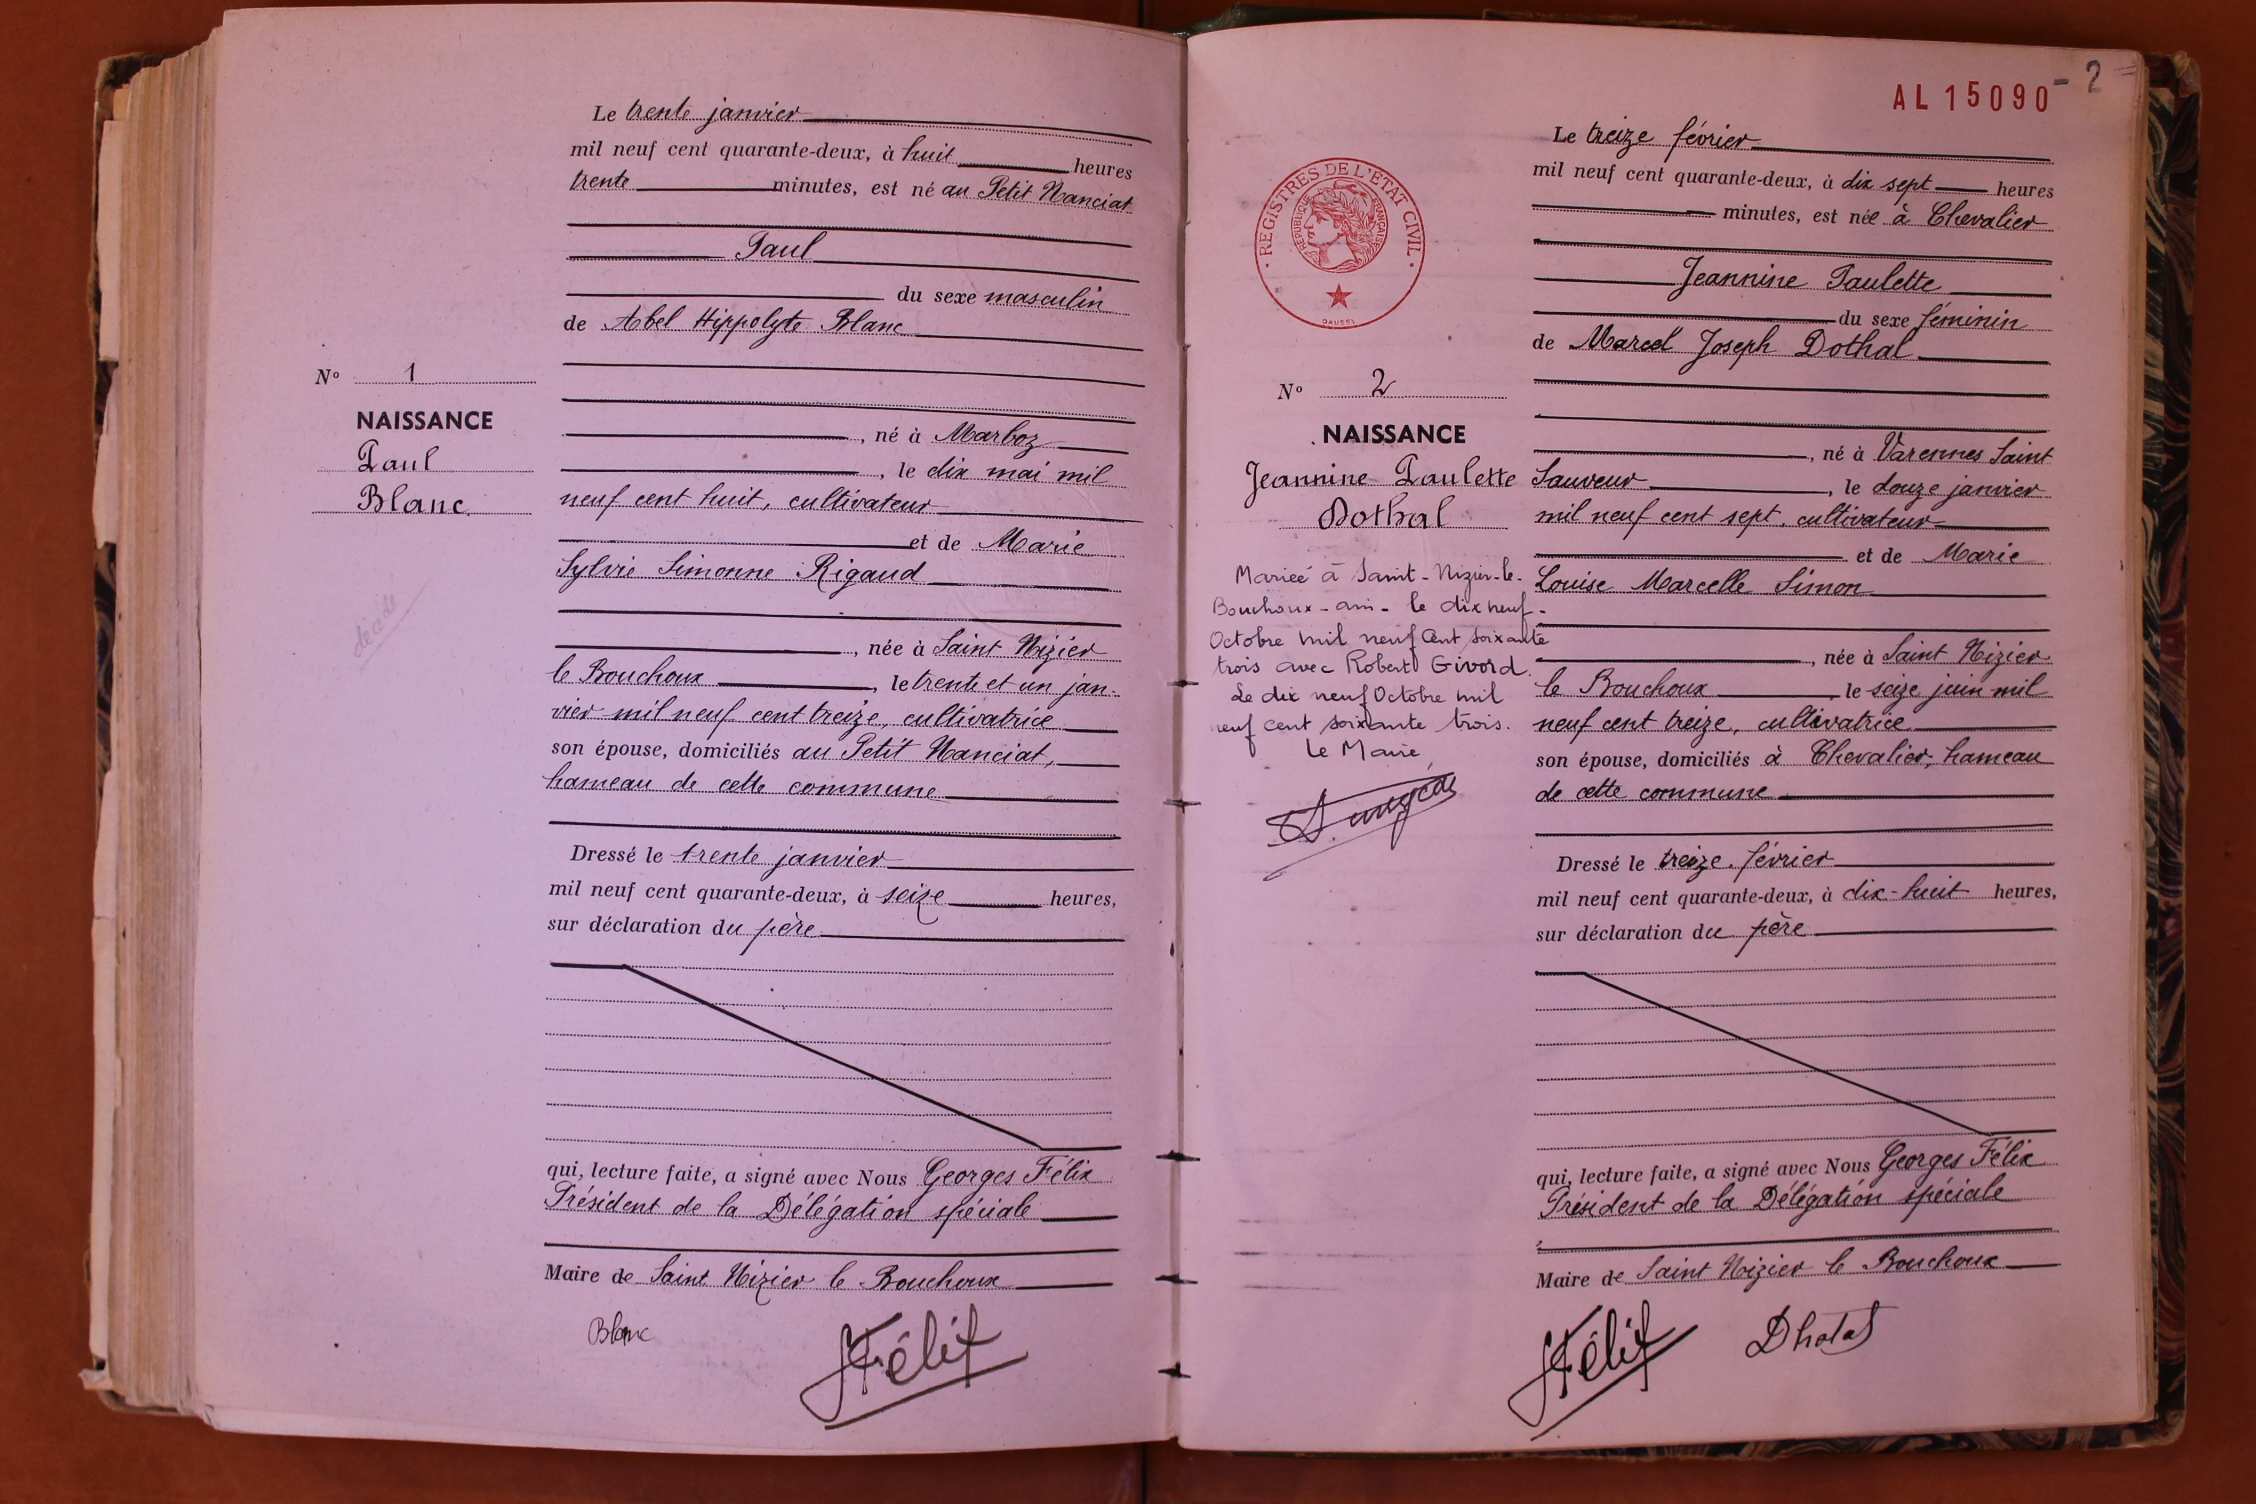 Le trente janvier
mil neuf cent quarante-deux, à huit heures
trente minutes, est né au Petit Nanciat
Paul
du sexe masculin
de Abel Hippolyte Blanc
N° 1
NAISSANCE
Paul
Blanc
décédé
, né à Marboz
, le dix mai mil
neuf cent huit, cultivateur
et de Marie
Sylvie Simonne Rigaud
, née à Saint Nizier
le Bouchoux , le trente et un jan-
vier mil neuf cent treize, cultivatrice
son épouse, domiciliés au Petit Nanciat,
hameau de cette commune
Dressé le trente janvier
mil neuf cent quarante-deux, à seize heures,
sur déclaration du père
qui, lecture faite, a signé avec Nous Georges Félix
Président de la Délégation spéciale
Maire de Saint Nizier le Bouchoux
Blanc
Félix
AL 15090
- 2 =
REGISTRES DE L'ETAT CIVIL
REPUBLIQUE FRANÇAISE
DAUSSI
Le treize février
mil neuf cent quarante-deux, à dix sept heures
minutes, est née à Chevalier
Jeannine Paulette
du sexe féminin
de Marcel Joseph Dothal
N° 2
NAISSANCE
Jeannine Paulette
Dothal
Mariée à Saint-Nizier-le-
Bouchoux-ain- le dix neuf-
Octobre mil neuf cent soixante
trois avec Robert Givord.
Le dix neuf Octobre mil
neuf cent soixante trois.
Le Maire,
, né à Varennes Saint
Sauveur , le douze janvier
mil neuf cent sept, cultivateur
et de Marie
Louise Marcelle Simon
, née à Saint Nizier
le Bouchoux , le seize juin mil
neuf cent treize, cultivatrice
son épouse, domiciliés à Chevalier, hameau
de cette commune
Dressé le treize février
mil neuf cent quarante-deux, à dix-huit heures,
sur déclaration du père
qui, lecture faite, a signé avec Nous Georges Félix
Président de la Délégation spéciale
Maire de Saint Nizier le Bouchoux
Félix Dhotal